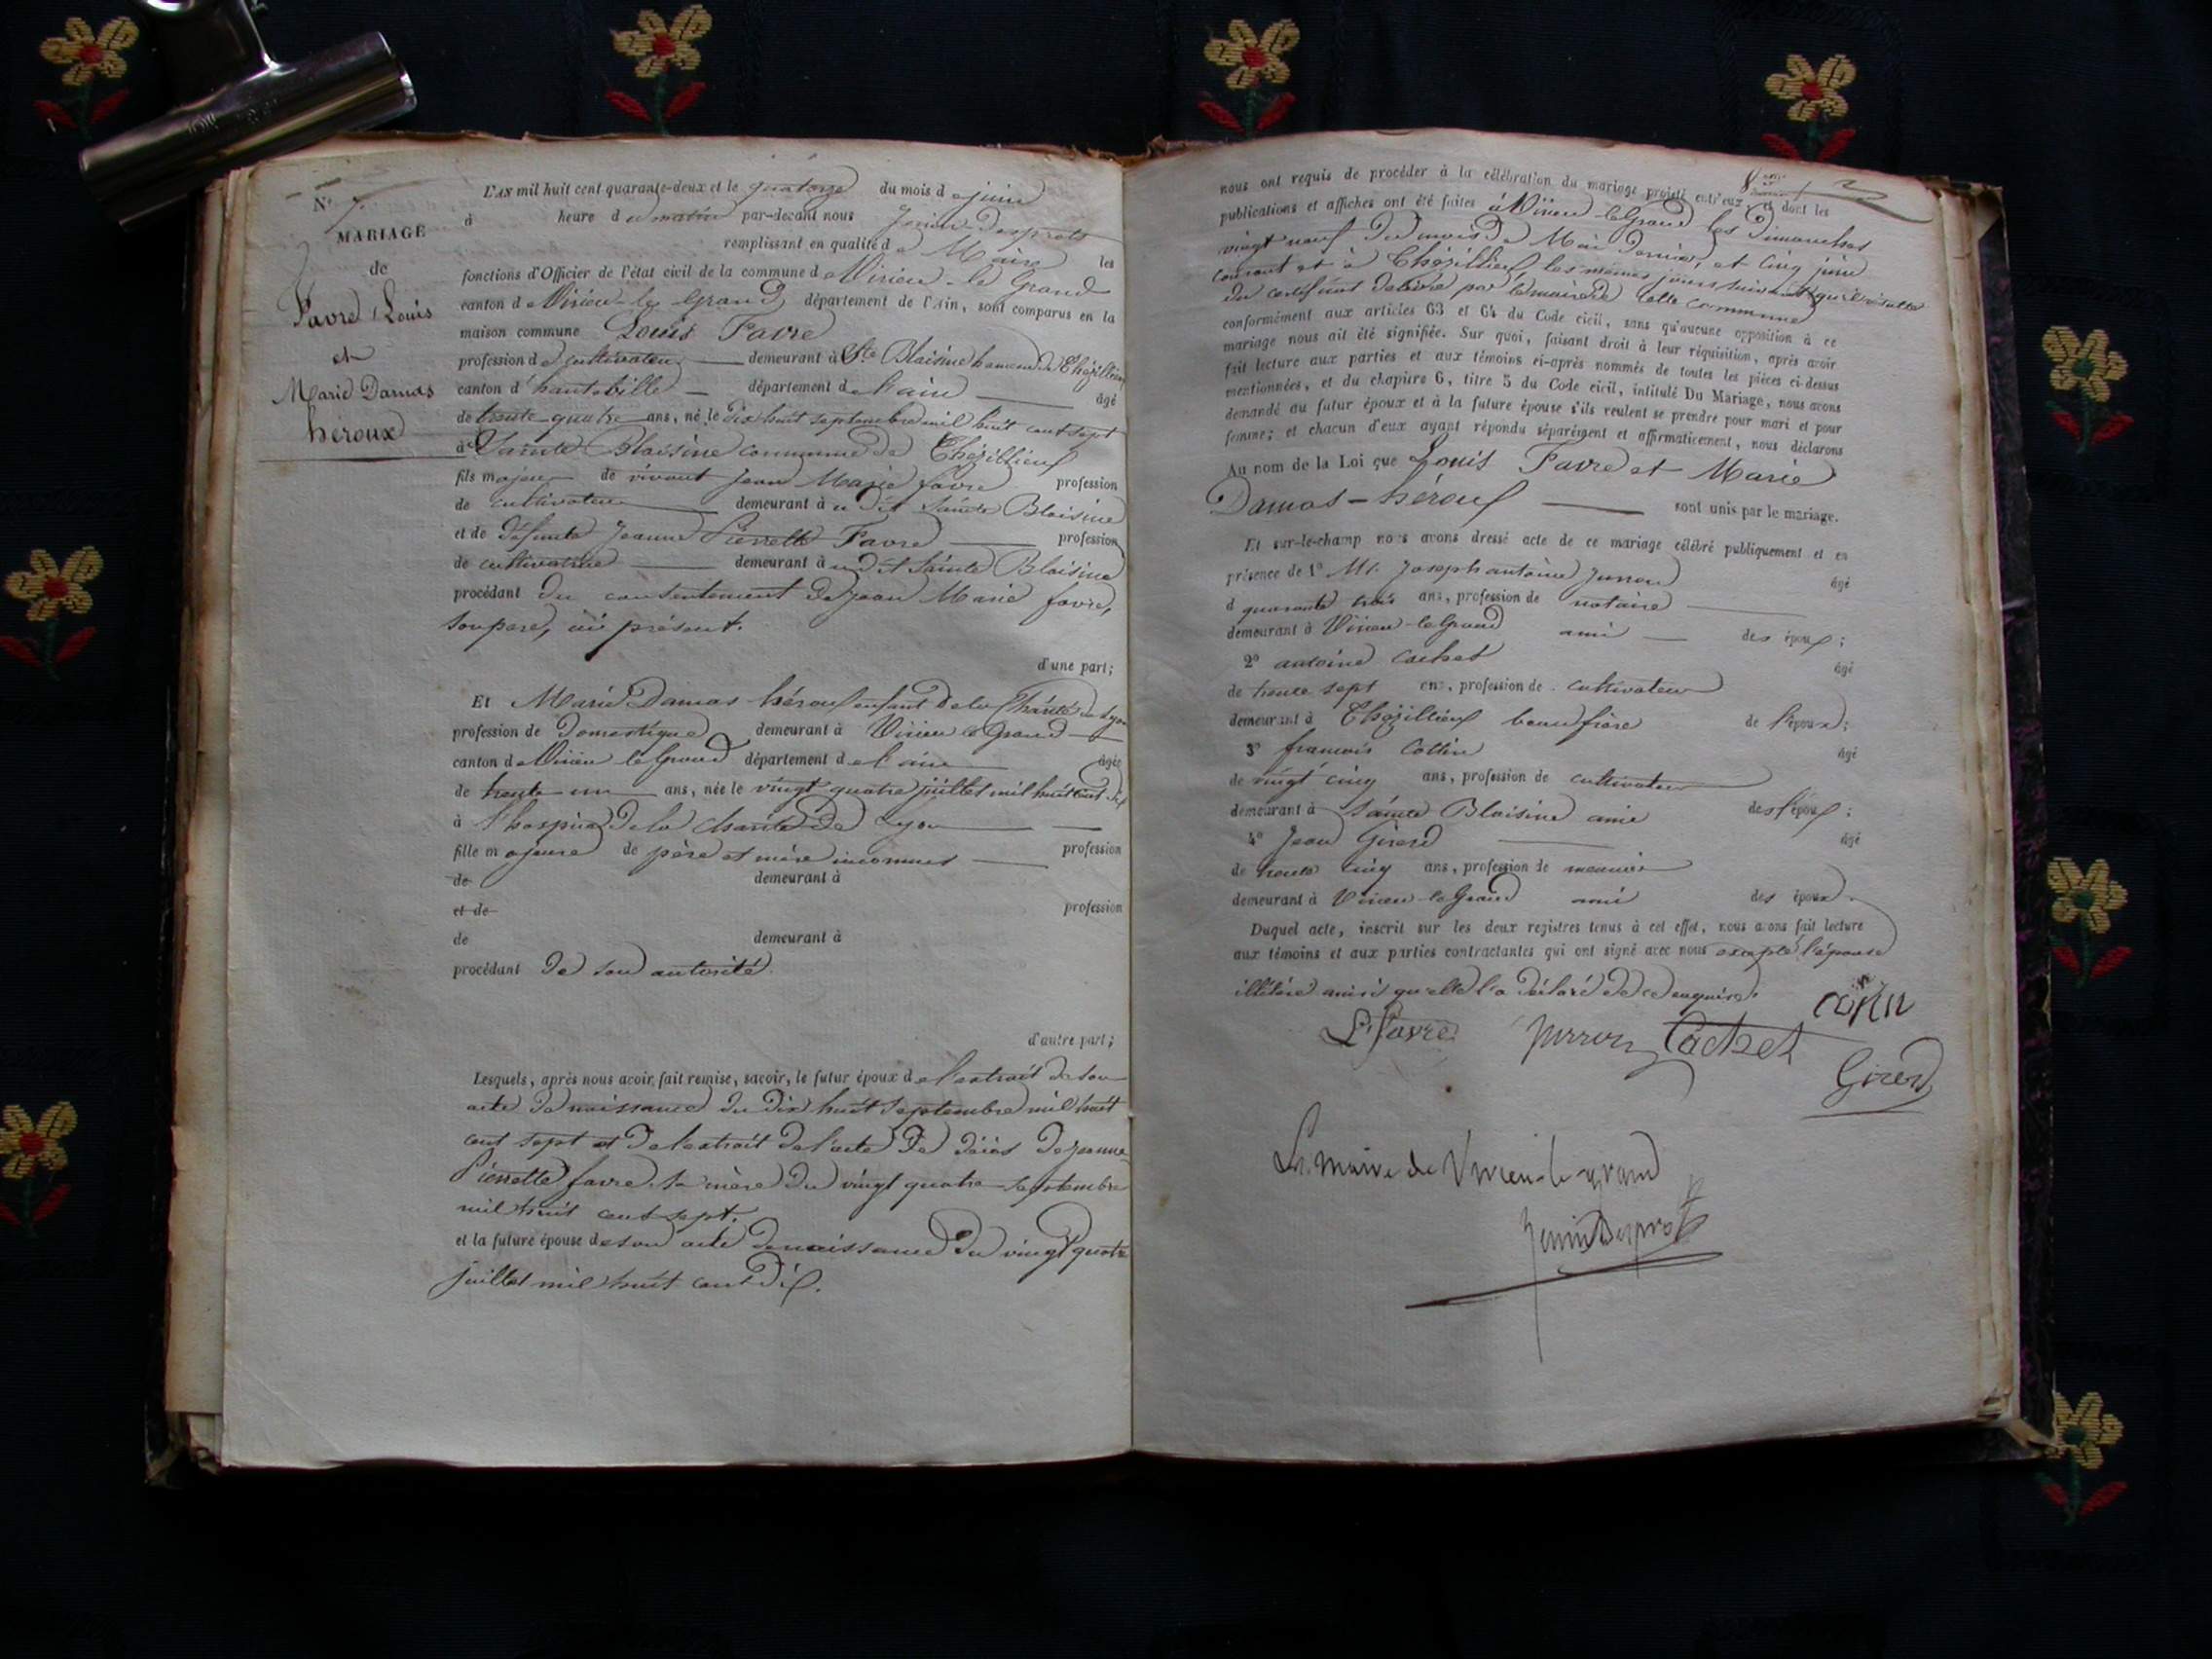 N° 7.
MARIAGE
de
Favre Louis
et
Marie Damas
héroux
L'AN mil huit cent quarante-deux et le quatorze du mois de juin
à heure du matin par-devant nous Jenin Desprots
remplissant en qualité de Maire les
fonctions d'Officier de l'état civil de la commune de Virieu-le Grand
canton de Virieu-le Grand, département de l'Ain, sont comparus en la
maison commune Louis Favre
profession de cultivateur demeurant à Ste Blaisine hameau de Thézillieu
canton d'hauteville département de l'ain âgé
de trente-quatre ans, né le dix huit septembre mil huit cent sept
à Sainte Blaisine commune de Thézillieux
fils majeur de vivant Jean Marie favre profession
de cultivateur demeurant à u dit Sainte Blaisine
et de défunte Jeanne Pierrette Favre profession
de cultivatrice demeurant à u dit Sainte Blaisine
procédant du consentement de Jean Marie favre,
son père, ici présent.
d'une part;
Et Marie Damas héroux enfant de la Charité de Lyon
profession de Domestique demeurant à Virieu le Grand
canton de Virieu le Grand département de l'ain âgée
de trente-un ans, née le vingt quatre juillet mil huit cent dix
à l'hospice de la charité de Lyon
fille majeure de père et mère inconnus profession
de demeurant à
et de profession
de demeurant à
procédant de son autorité.
d'autre part;
Lesquels, après nous avoir fait remise, savoir, le futur époux de l'extrait de son
acte de naissance du dix huit septembre mil huit
cent sept et de l'extrait de l'acte de décès de jeanne
Pierrette favre sa mère du vingt quatre septembre
mil huit cent sept.
et la future épouse de son acte de naissance du vingt quatre
juillet mil huit cent dix.
nous ont requis de procéder à la célébration du mariage projeté entr'eux, et dont les
publications et affiches ont été faites à Virieu-le Grand les Dimanches
vingt neuf du mois de Mai dernier, et cinq juin
courant et à Thézillieux les mêmes jours suivant qu'il résulte
du certificat délivré par le maire de cette commune
conformément aux articles 63 et 64 du Code civil, sans qu'aucune opposition à ce
mariage nous ait été signifiée. Sur quoi, faisant droit à leur réquisition, après avoir
fait lecture aux parties et aux témoins ci-après nommés de toutes les pièces ci-dessus
mentionnées, et du chapitre 6, titre 5 du Code civil, intitulé Du Mariage, nous avons
demandé au futur époux et à la future épouse s'ils veulent se prendre pour mari et pour
femme; et chacun d'eux ayant répondu séparément et affirmativement, nous déclarons
Au nom de la Loi que Louis Favre et Marie
Damas-héroux sont unis par le mariage.
Et sur-le-champ nous avons dressé acte de ce mariage célébré publiquement et en
présence de 1° Mr. Joseph antoine Jurron âgé
d quarante trois ans, profession de notaire
demeurant à Virieu-le Grand ami des époux;
2° antoine Cachet âgé
de trente sept ans, profession de cultivateur
demeurant à Thézillieux beau frère de l'époux;
3° francois Collin âgé
de vingt cinq ans, profession de cultivateur
demeurant à Sainte Blaisine ami des l'époux;
4° Jean Girerd âgé
de trente cinq ans, profession de meunier
demeurant à Virieu-le Grand ami des époux.
Duquel acte, inscrit sur les deux registres tenus à cet effet, nous avons fait lecture
aux témoins et aux parties contractantes qui ont signé avec nous excepté l'épouse
illétérée ainsi qu'elle l'a déclaré de ce enquise.
L. favre Jurron Cachet
Girerd
Le maire de Virieu-le grand
Jenin Desprots